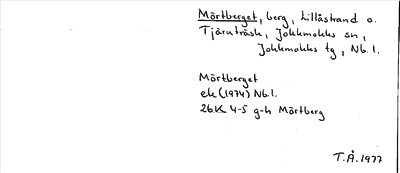 Mörtberget, berg, Lillåstrand o.
Tjäruträsk, Jokkmokks sn,
Jokkmokks tg, Nb. l.
Mörtberget
ek (1974) Nb. l.
26K 4-5 g-h Mörtberg
T.Å. 1977